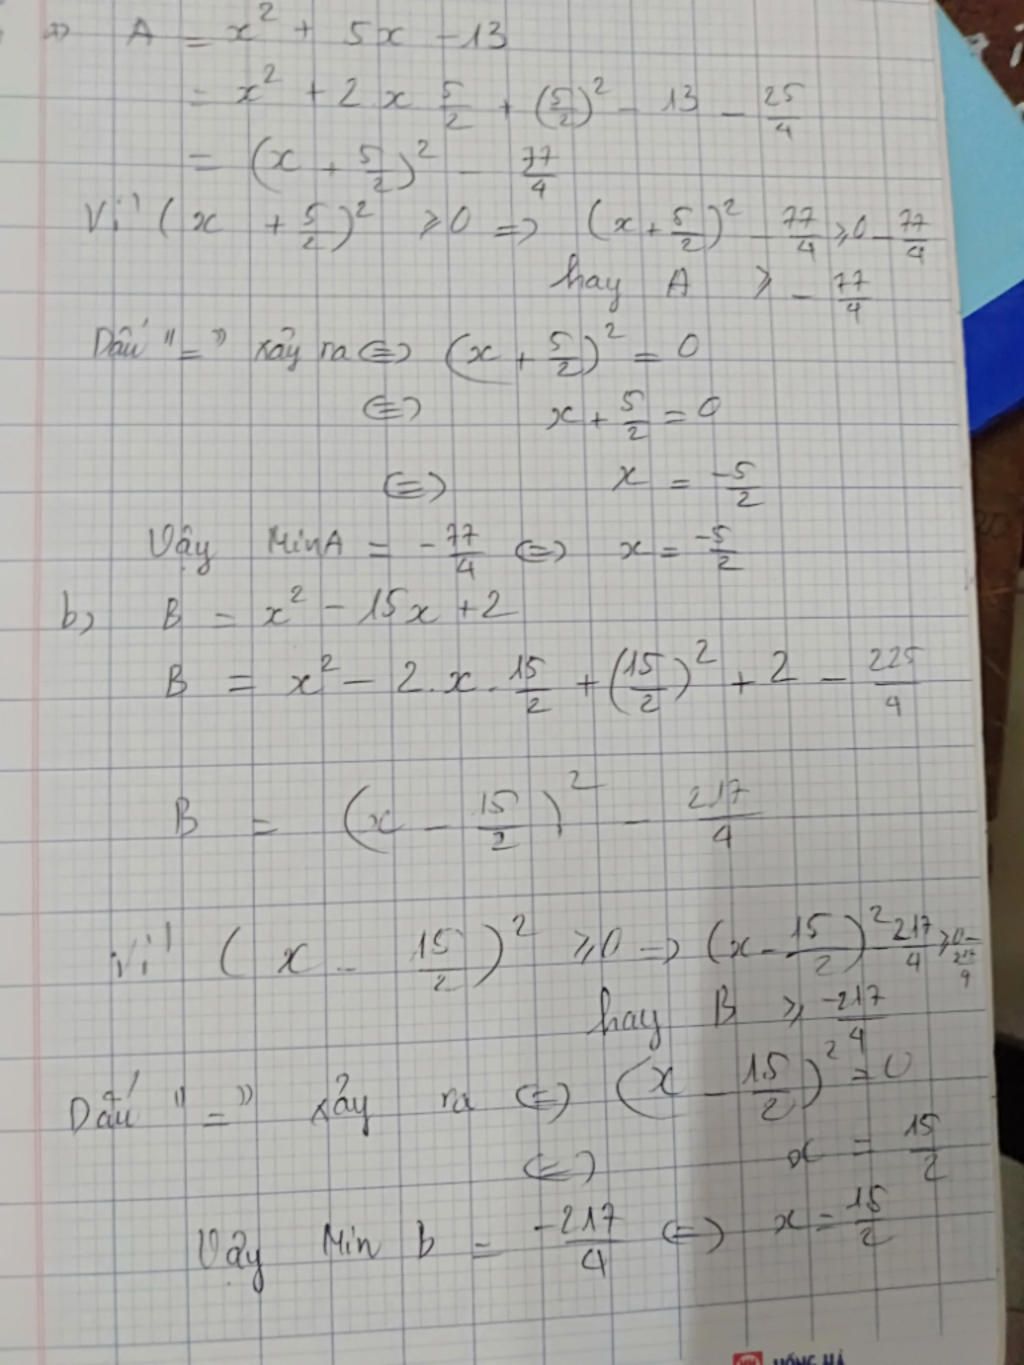 A = x² + 5x - 13
= x² + 2 x 5/2 + (5/2)² - 13 - 25/4
= (x + 5/2)² - 77/4
Vì (x + 5/2)² ⩾ 0 => (x + 5/2)² - 77/4 ⩾ 0 - 77/4
hay A ⩾ - 77/4
Dấu "=" xảy ra <=> (x + 5/2)² = 0
<=> x + 5/2 = 0
<=> x = -5/2
Vậy MinA = - 77/4 <=> x = -5/2
b, B = x² - 15x + 2
B = x² - 2.x.15/2 + (15/2)² + 2 - 225/4
B = (x - 15/2)² - 217/4
Vì (x - 15/2)² ⩾ 0 => (x - 15/2)² - 217/4 ⩾ 0 - 217/4
hay B ⩾ -217/4
Dấu "=" xảy ra <=> (x - 15/2)² = 0
<=> x = 15/2
Vậy Min b = -217/4 <=> x = 15/2
HỒNG HÀ